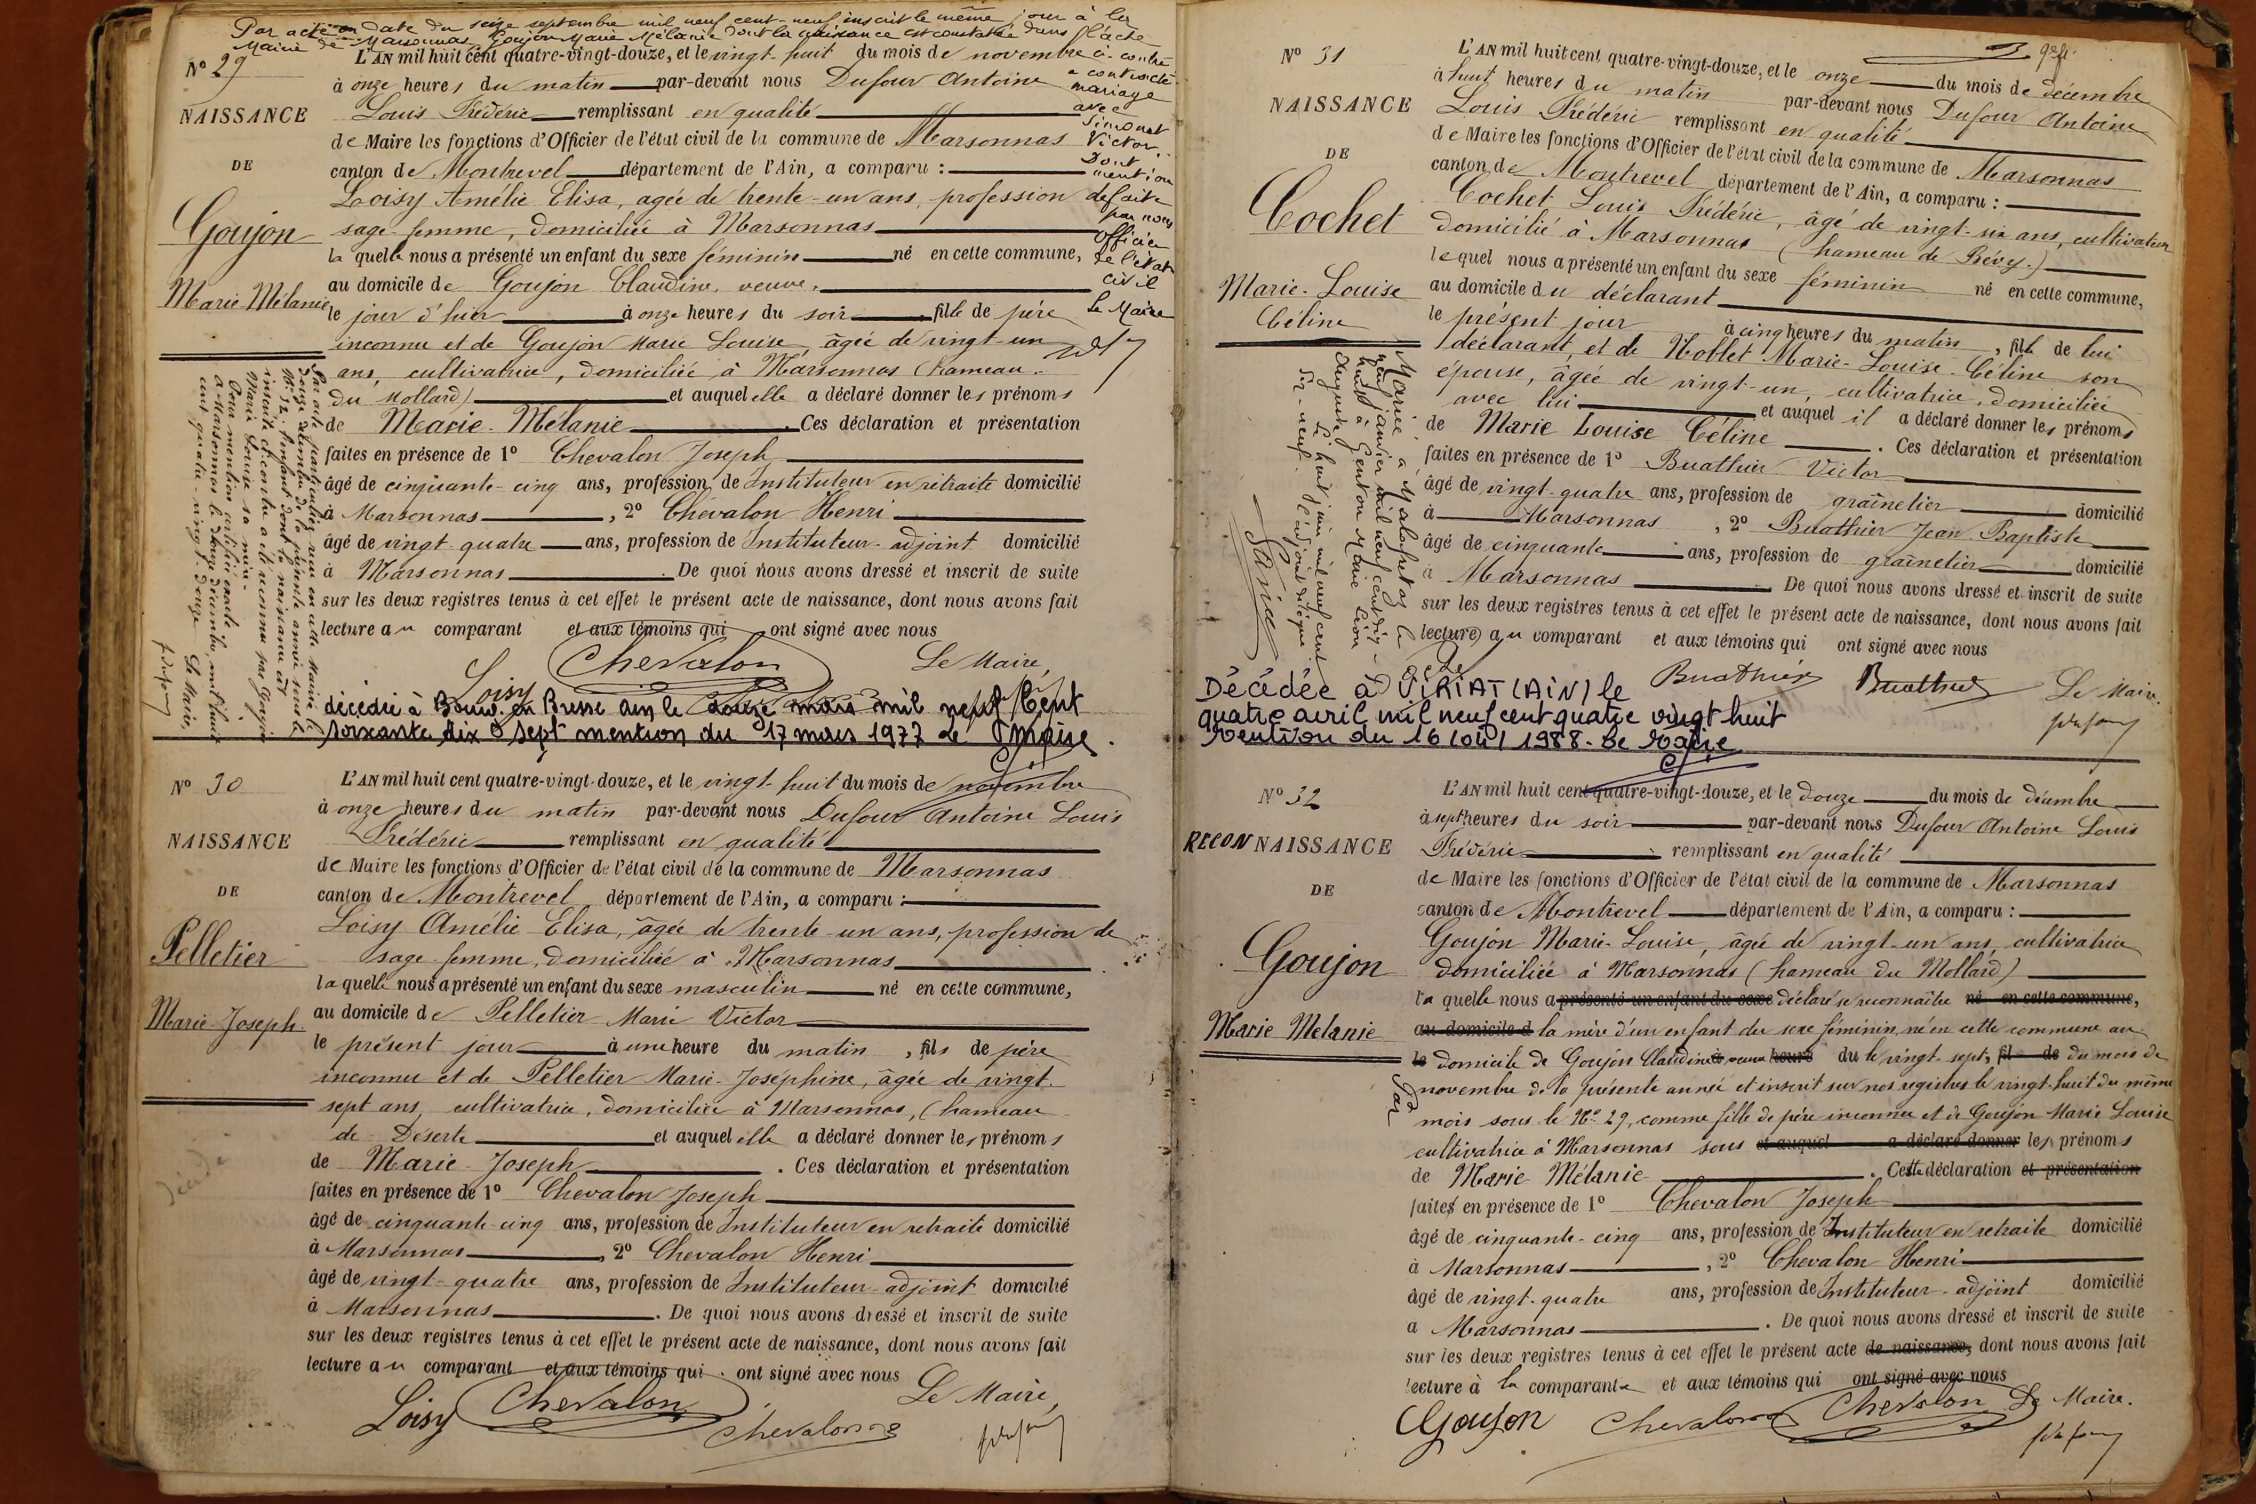 Par acte en date du seize septembre mil neuf cent-neuf inscrit le même jour à la
Mairie de Marsonnas Goujon Marie Mélanie dont la naissance est constatée dans l'acte
ci-contre
a contracté
mariage
avec
Simonet
Victor.
Dont
mention
de faite
par nous
officier
de l'état
civil
Le Maire
N° 29
NAISSANCE
DE
Goujon
Marie Mélanie
L'AN mil huit cent quatre-vingt-douze, et le vingt-huit du mois de novembre
à onze heures du matin par-devant nous Dufour Antoine
Louis Frédéric remplissant en qualité
de Maire les fonctions d'Officier de l'état civil de la commune de Marsonnas
canton de Montrevel département de l'Ain, a comparu :
Loisy Amélie Elisa, agée de trente-un ans, profession de
sage-femme, domiciliée à Marsonnas
la quelle nous a présenté un enfant du sexe féminin né en cette commune,
au domicile de Goujon Claudine, veuve,
le jour d'hier à onze heures du soir fille de père
inconnu et de Goujon Marie Louise, âgée de vingt-un
ans, cultivatrice, domiciliée à Marsonnas (hameau
du Mollard) et auquel elle a déclaré donner les prénoms
de Marie-Mélanie. Ces déclaration et présentation
faites en présence de 1° Chevalon Joseph
âgé de cinquante-cinq ans, profession de Instituteur en retraite domicilié
à Marsonnas, 2° Chevalon Henri
âgé de vingt-quatre ans, profession de Instituteur-adjoint domicilié
à Marsonnas. De quoi nous avons dressé et inscrit de suite
sur les deux registres tenus à cet effet le présent acte de naissance, dont nous avons fait
lecture au comparant et aux témoins qui ont signé avec nous
Loisy Chevalon Le Maire,
Par acte particulier reçu en cette Mairie le
douze décembre de la présente année sous le
N° 32, l'enfant dont la naissance est
inscrite ci-contre a été reconnu par Goujon
Marie Louise sa mère.
Pour mention certifiée exacte
à Marsonnas le douze décembre mil huit
cent quatre-vingt-douze
Le Maire,
décédée à Bourg en Bresse Ain le douze mars mil neuf cent
soixante dix sept mention du 17 mars 1977 Le Maire.
N° 30
NAISSANCE
DE
Pelletier
Marie-Joseph
décédé
L'AN mil huit cent quatre-vingt-douze, et le vingt-huit du mois de novembre
à onze heures du matin par-devant nous Dufour Antoine Louis
Frédéric remplissant en qualité
de Maire les fonctions d'Officier de l'état civil de la commune de Marsonnas
canton de Montrevel département de l'Ain, a comparu :
Loisy Amélie Elisa, âgée de trente-un ans, profession de
sage-femme, domiciliée à Marsonnas
la quelle nous a présenté un enfant du sexe masculin né en cette commune,
au domicile de Pelletier Marie Victor
le présent jour à une heure du matin, fils de père
inconnu et de Pelletier Marie-Joséphine, âgée de vingt-
sept ans, cultivatrice, domiciliée à Marsonnas, (hameau
de Déserte et auquel elle a déclaré donner les prénoms
de Marie-Joseph. Ces déclaration et présentation
faites en présence de 1° Chevalon Joseph
âgé de cinquante-cinq ans, profession de Instituteur en retraite domicilié
à Marsonnas, 2° Chevalon Henri
âgé de vingt-quatre ans, profession de Instituteur-adjoint domicilié
à Marsonnas. De quoi nous avons dressé et inscrit de suite
sur les deux registres tenus à cet effet le présent acte de naissance, dont nous avons fait
lecture au comparant et aux témoins qui ont signé avec nous
Loisy Chevalon Chevalon Le Maire,
N° 31
NAISSANCE
DE
Cochet
Marie-Louise
Céline
L'AN mil huit cent quatre-vingt-douze, et le onze du mois de décembre
à huit heures du matin par-devant nous Dufour Antoine
Louis Frédéric remplissant en qualité
de Maire les fonctions d'Officier de l'état civil de la commune de Marsonnas
canton de Montrevel département de l'Ain, a comparu :
Cochet Louis Frédéric, âgé de vingt-six ans, cultivateur
domicilié à Marsonnas (hameau de Bévy.)
lequel nous a présenté un enfant du sexe féminin né en cette commune,
au domicile du déclarant
le présent jour à cinq heures du matin, fille de lui
déclarant, et de Noblet Marie-Louise-Céline son
épouse, âgée de vingt-un, cultivatrice, domiciliée
avec lui et auquel il a déclaré donner les prénoms
de Marie Louise Céline. Ces déclaration et présentation
faites en présence de 1° Buathier Victor
âgé de vingt-quatre ans, profession de grainetier domicilié
à Marsonnas, 2° Buathier Jean-Baptiste
âgé de cinquante ans, profession de grainetier domicilié
à Marsonnas. De quoi nous avons dressé et inscrit de suite
sur les deux registres tenus à cet effet le présent acte de naissance, dont nous avons fait
lecture au comparant et aux témoins qui ont signé avec nous
Buathier Buathier Le Maire.
Mariée à Malafretaz le
neuf janvier mil neuf cent dix-
huit à Genton Marie Léon
Auguste. Le huit juin mil neuf cent
dix-neuf. l'adjoint délégué
Décédée à VIRIAT (AIN) le
quatre avril mil neuf cent quatre vingt huit
Mention du 16 Août 1988. Le Maire
N° 32
RECONNAISSANCE
DE
Goujon
Marie Mélanie
L'AN mil huit cent quatre-vingt-douze, et le douze du mois de décembre
à sept heures du soir par-devant nous Dufour Antoine Louis
Frédéric remplissant en qualité
de Maire les fonctions d'Officier de l'état civil de la commune de Marsonnas
canton de Montrevel département de l'Ain, a comparu :
Goujon Marie-Louise, âgée de vingt-un ans, cultivatrice
domiciliée à Marsonnas (hameau du Mollard)
la quelle nous a présenté un enfant du sexe déclaré se reconnaître né en cette commune,
au domicile d la mère d'un enfant du sexe féminin, né en cette commune au
le domicile de Goujon Claudine veuve heure du le vingt-sept, fil de du mois de
novembre de la présente année et inscrit sur nos registres le vingt-huit du même
mois sous le N° 29, comme fille de père inconnu et de Goujon Marie Louise
cultivatrice à Marsonnas sous et auquel a déclaré donner les prénoms
de Marie Mélanie. Cette déclaration et présentation
faites en présence de 1° Chevalon Joseph
âgé de cinquante-cinq ans, profession de Instituteur en retraite domicilié
à Marsonnas, 2° Chevalon Henri
âgé de vingt-quatre ans, profession de Instituteur-adjoint domicilié
à Marsonnas. De quoi nous avons dressé et inscrit de suite
sur les deux registres tenus à cet effet le présent acte de naissance, dont nous avons fait
lecture à la comparante et aux témoins qui ont signé avec nous
Goujon Chevalon Chevalon Le Maire.